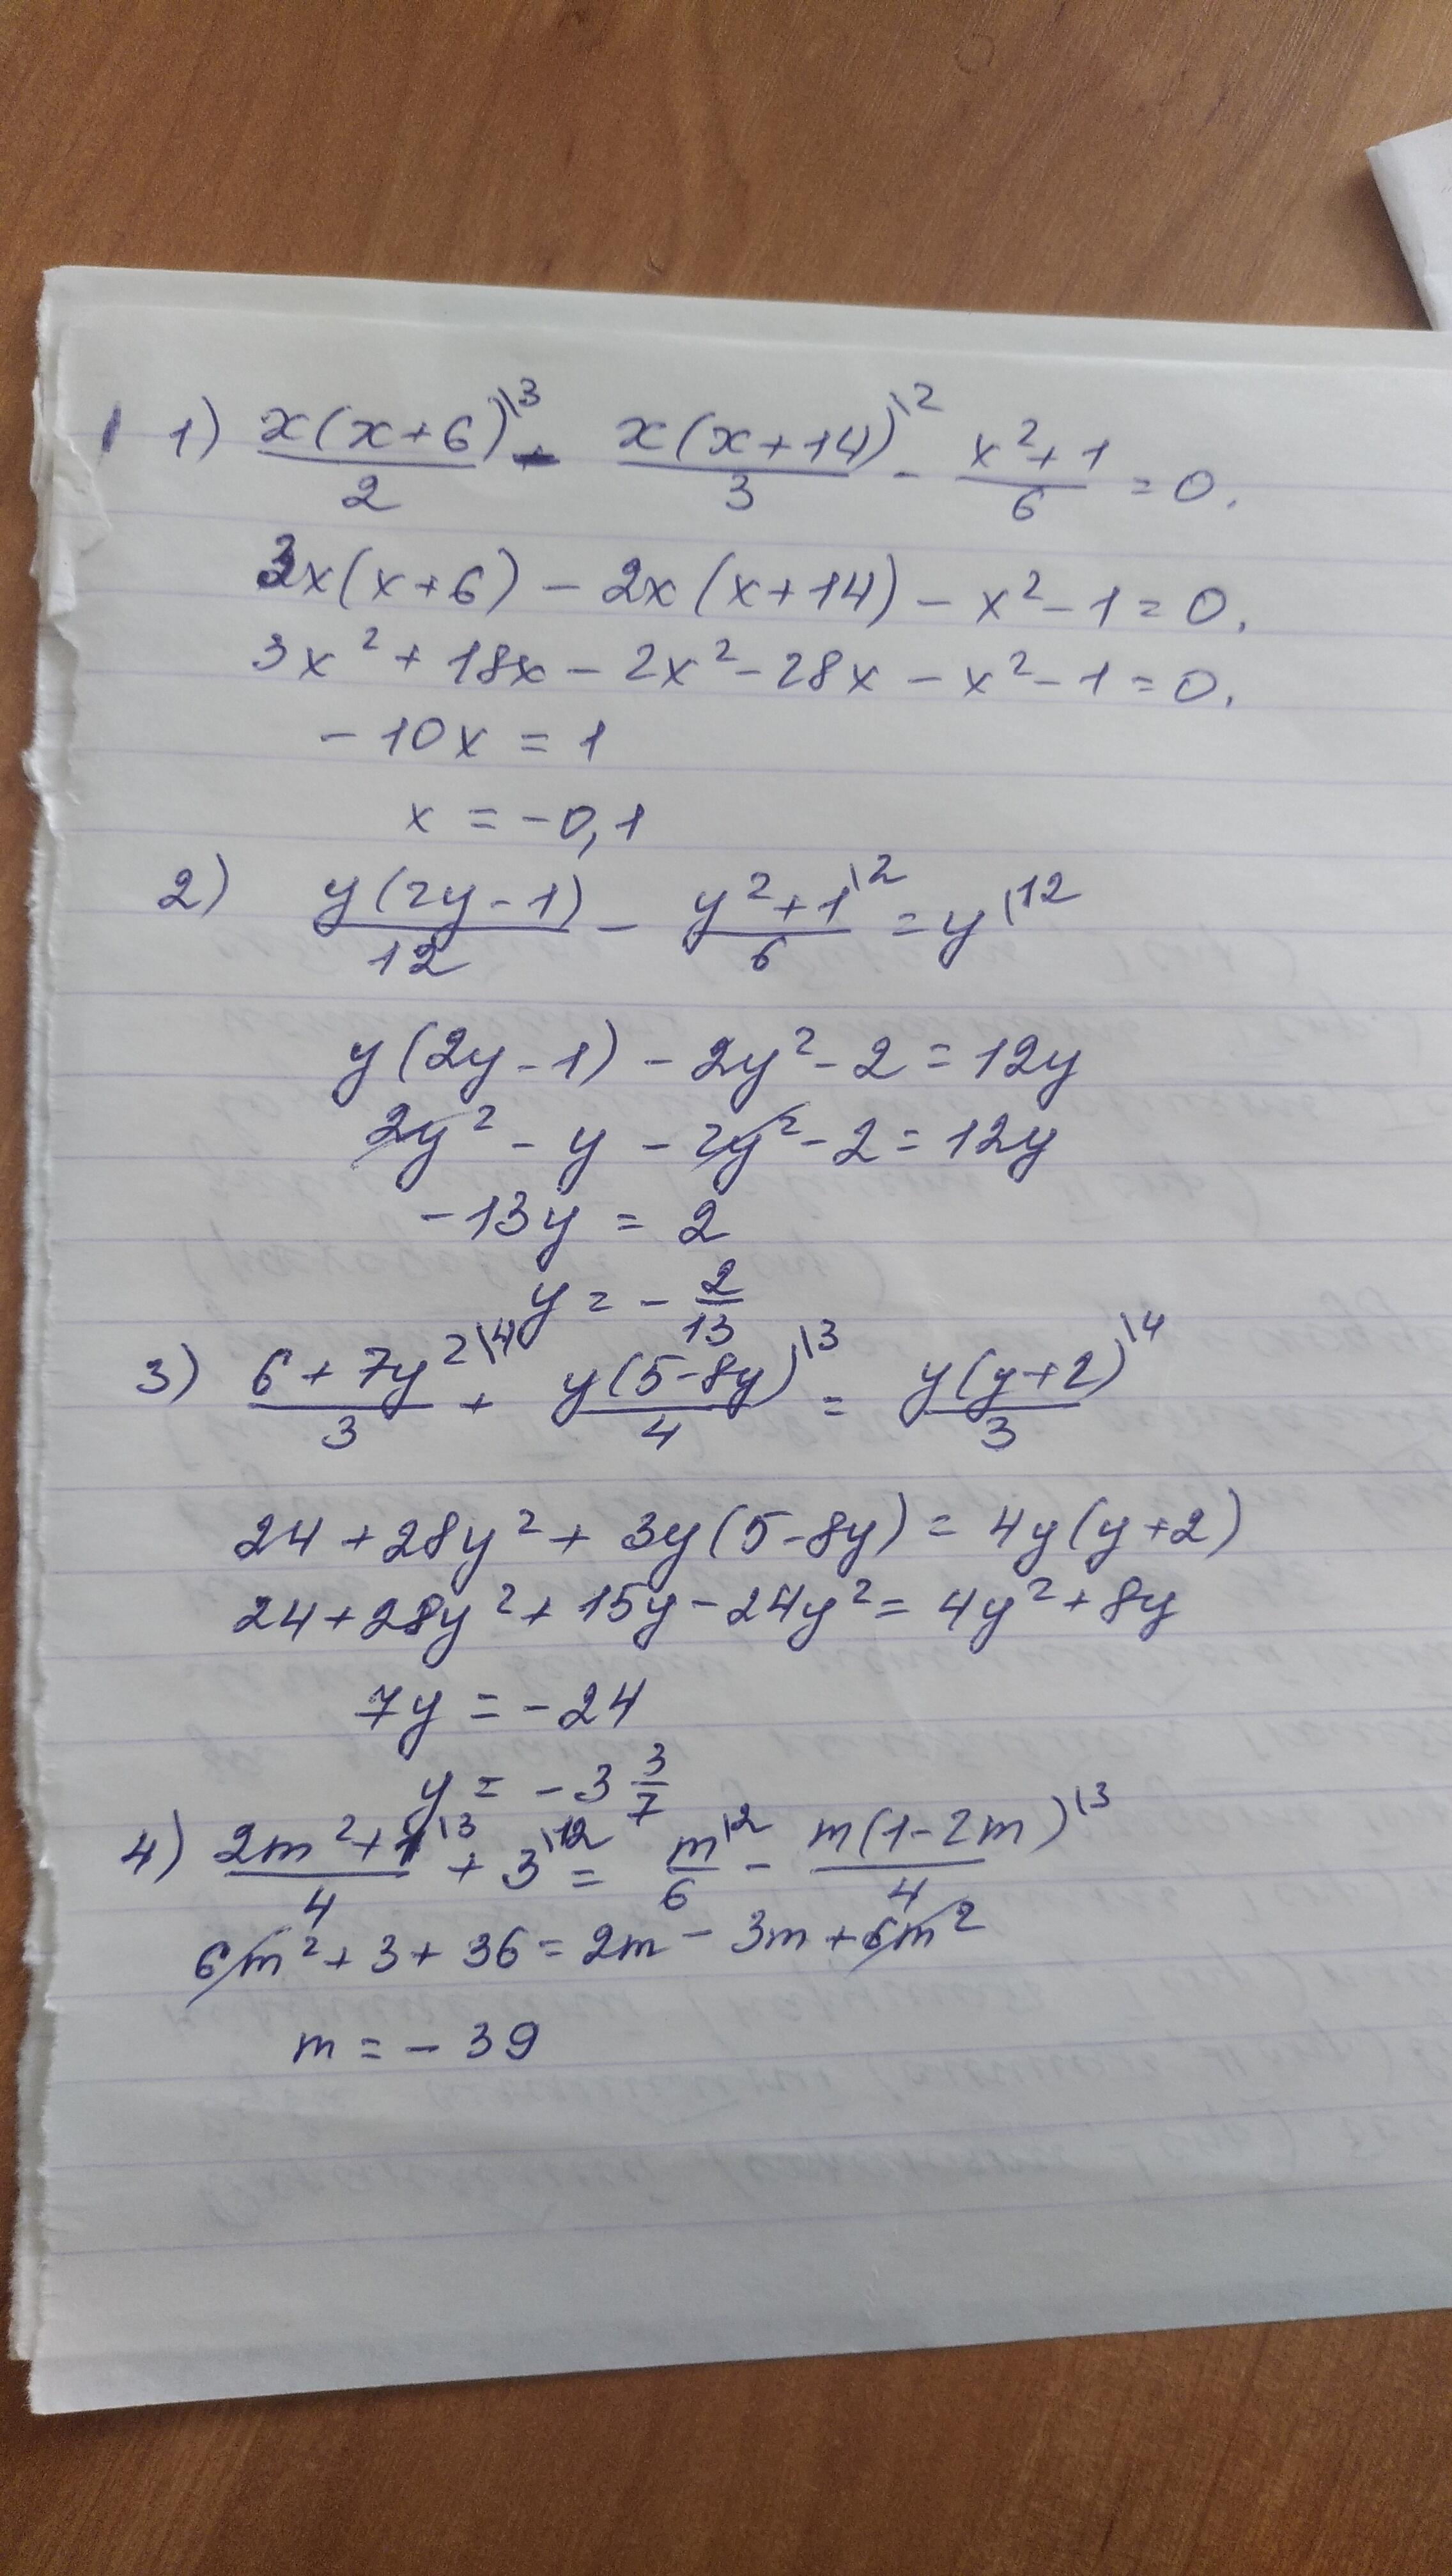 1) x(x+6)\3 / 2 - x(x+14)\2 / 3 - x²+1 / 6 = 0.
3x(x+6) - 2x(x+14) - x² - 1 = 0.
3x² + 18x - 2x² - 28x - x² - 1 = 0.
-10x = 1
x = -0,1
2) y(2y-1) / 12 - y²+1\2 / 6 = y\12
y(2y-1) - 2y² - 2 = 12y
2y² - y - 2y² - 2 = 12y
-13y = 2
y = - 2/13
3) 6+7y²\4 / 3 + y(5-8y)\3 / 4 = y(y+2)\4 / 3
24 + 28y² + 3y(5-8y) = 4y(y+2)
24 + 28y² + 15y - 24y² = 4y² + 8y
7y = -24
y = -3 3/7
4) 2m²+1\3 / 4 + 3\12 = m\2 / 6 - m(1-2m)\3 / 4
6m² + 3 + 36 = 2m - 3m + 6m²
m = - 39